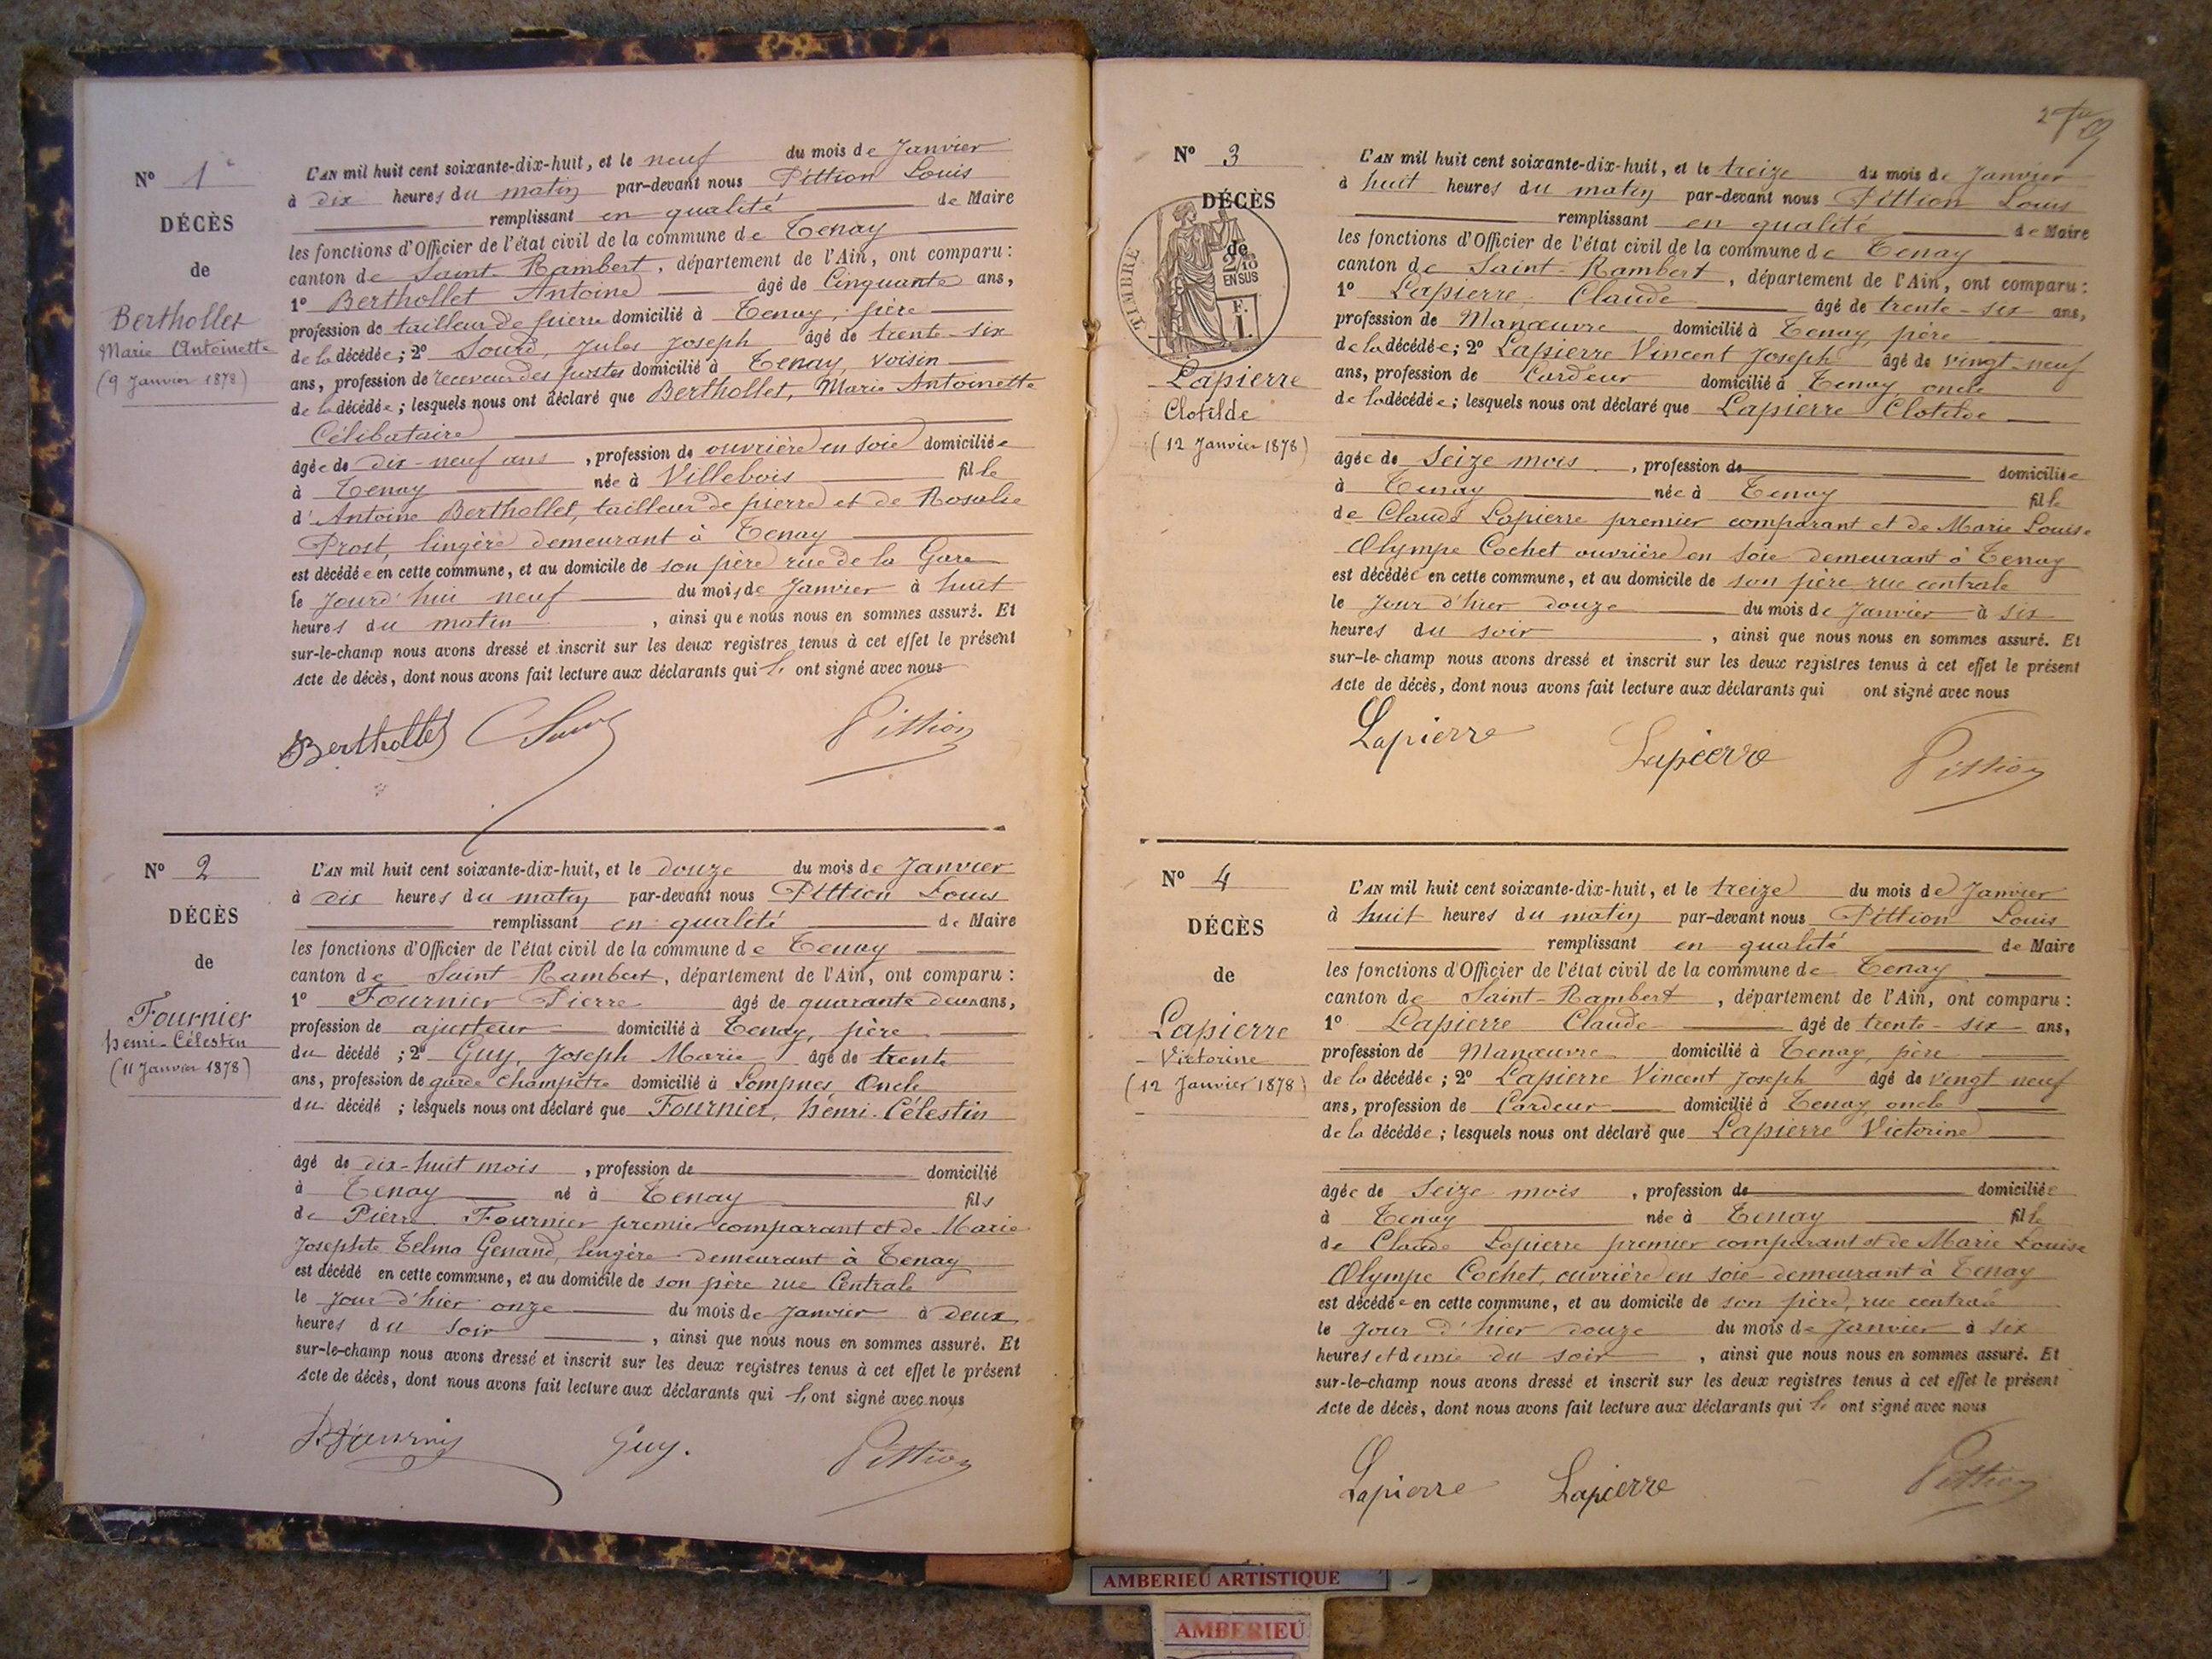 N° 1
DÉCÈS
de
Berthollet
Marie Antoinette
(9 Janvier 1878)
L'AN mil huit cent soixante-dix-huit, et le neuf du mois de Janvier
à dix heures du matin par-devant nous Pittion Louis
remplissant en qualité de Maire
les fonctions d'Officier de l'état civil de la commune de Tenay
canton de Saint-Rambert, département de l'Ain, ont comparu :
1° Berthollet Antoine âgé de Cinquante ans,
profession de tailleur de pierre domicilié à Tenay, père
de la décédée ; 2° Sourd, Jules Joseph âgé de trente-six
ans, profession de receveur des postes domicilié à Tenay, voisin
de la décédée ; lesquels nous ont déclaré que Berthollet, Marie Antoinette
Célibataire
âgée de dix-neuf ans, profession de ouvrière en soie domiciliée
à Tenay née à Villebois fille
d'Antoine Berthollet, tailleur de pierre et de Rosalie
Prost, lingère demeurant à Tenay
est décédée en cette commune, et au domicile de son père rue de la Gare
le Jourd'hui neuf du mois de Janvier à huit
heures du matin, ainsi que nous nous en sommes assuré. Et
sur-le-champ nous avons dressé et inscrit sur les deux registres tenus à cet effet le présent
Acte de décès, dont nous avons fait lecture aux déclarants qui ont signé avec nous
Berthollet Pittion
N° 2
DÉCÈS
de
Fournier
henri-Célestin
(11 Janvier 1878)
L'AN mil huit cent soixante-dix-huit, et le douze du mois de Janvier
à dix heures du matin par-devant nous Pittion Louis
remplissant en qualité de Maire
les fonctions d'Officier de l'état civil de la commune de Tenay
canton de Saint-Rambert, département de l'Ain, ont comparu :
1° Fournier Pierre âgé de quarante deux ans,
profession de ajusteur domicilié à Tenay, père
du décédé ; 2° Guy, Joseph Marie âgé de trente
ans, profession de garde champêtre domicilié à Lompnes Oncle
du décédé ; lesquels nous ont déclaré que Fournier, henri-Célestin
âgé de dix-huit mois, profession de domicilié
à Tenay né à Tenay fils
de Pierre Fournier premier comparant et de Marie
Josephte Telma Genand, lingère demeurant à Tenay
est décédé en cette commune, et au domicile de son père rue Centrale
le Jour d'hier onze du mois de Janvier à deux
heures du soir, ainsi que nous nous en sommes assuré. Et
sur-le-champ nous avons dressé et inscrit sur les deux registres tenus à cet effet le présent
Acte de décès, dont nous avons fait lecture aux déclarants qui ont signé avec nous
Guy. Pittion
N° 3
DÉCÈS
de
TIMBRE
2/10
EN SUS
F.
1.
Lapierre
Clotilde
(12 Janvier 1878)
L'AN mil huit cent soixante-dix-huit, et le treize du mois de Janvier
à huit heures du matin par-devant nous Pittion Louis
remplissant en qualité de Maire
les fonctions d'Officier de l'état civil de la commune de Tenay
canton de Saint-Rambert, département de l'Ain, ont comparu :
1° Lapierre Claude âgé de trente-six ans,
profession de Manœuvre domicilié à Tenay, père
de la décédée ; 2° Lapierre Vincent Joseph âgé de vingt-neuf
ans, profession de Cardeur domicilié à Tenay oncle
de la décédée ; lesquels nous ont déclaré que Lapierre Clotilde
âgée de Seize mois, profession de domiciliée
à Tenay née à Tenay fille
de Claude Lapierre premier comparant et de Marie Louise
Olympe Cochet ouvrière en soie demeurant à Tenay
est décédée en cette commune, et au domicile de son père rue centrale
le Jour d'hier douze du mois de Janvier à six
heures du soir, ainsi que nous nous en sommes assuré. Et
sur-le-champ nous avons dressé et inscrit sur les deux registres tenus à cet effet le présent
Acte de décès, dont nous avons fait lecture aux déclarants qui ont signé avec nous
Lapierre Lapierre Pittion
N° 4
DÉCÈS
de
Lapierre
Victorine
(12 Janvier 1878)
L'AN mil huit cent soixante-dix-huit, et le treize du mois de Janvier
à huit heures du matin par-devant nous Pittion Louis
remplissant en qualité de Maire
les fonctions d'Officier de l'état civil de la commune de Tenay
canton de Saint-Rambert, département de l'Ain, ont comparu :
1° Lapierre Claude âgé de trente-six ans,
profession de Manœuvre domicilié à Tenay, père
de la décédée ; 2° Lapierre Vincent Joseph âgé de vingt neuf
ans, profession de Cardeur domicilié à Tenay, oncle
de la décédée ; lesquels nous ont déclaré que Lapierre Victorine
âgée de Seize mois, profession de domiciliée
à Tenay née à Tenay fille
de Claude Lapierre premier comparant et de Marie Louise
Olympe Cochet, ouvrière en soie demeurant à Tenay
est décédée en cette commune, et au domicile de son père, rue centrale
le Jour d'hier douze du mois de Janvier à six
heures et demie du soir, ainsi que nous nous en sommes assuré. Et
sur-le-champ nous avons dressé et inscrit sur les deux registres tenus à cet effet le présent
Acte de décès, dont nous avons fait lecture aux déclarants qui ont signé avec nous
Lapierre Lapierre Pittion
AMBERIEU ARTISTIQUE
AMBERIEU